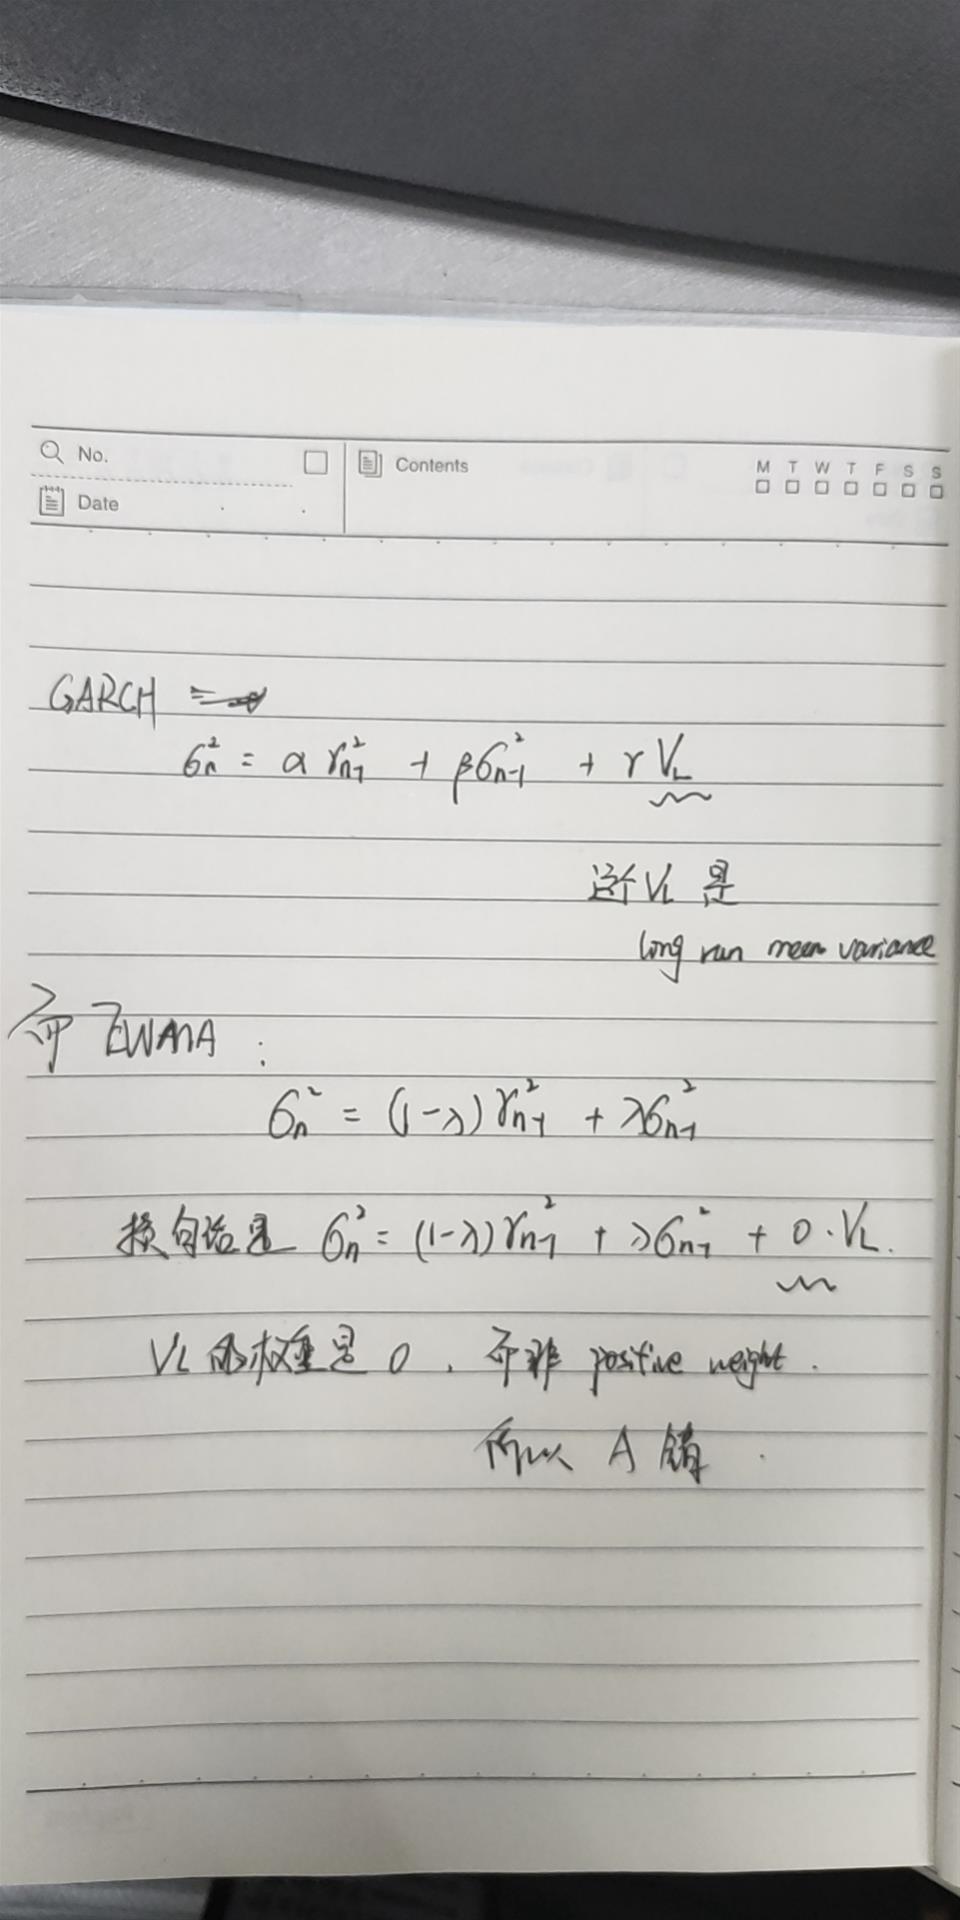 No.
Date
Contents
M T W T F S S
GARCH
σn² = α rn-1² + βσn-1² + γ VL
这个 VL 是
long run mean variance
而 EWMA :
σn² = (1-λ) rn-1² + λσn-1²
换句话是 σn² = (1-λ) rn-1² + λσn-1² + 0 · VL.
VL 的权重是 0 , 而非 positive weight .
所以 A 错 .